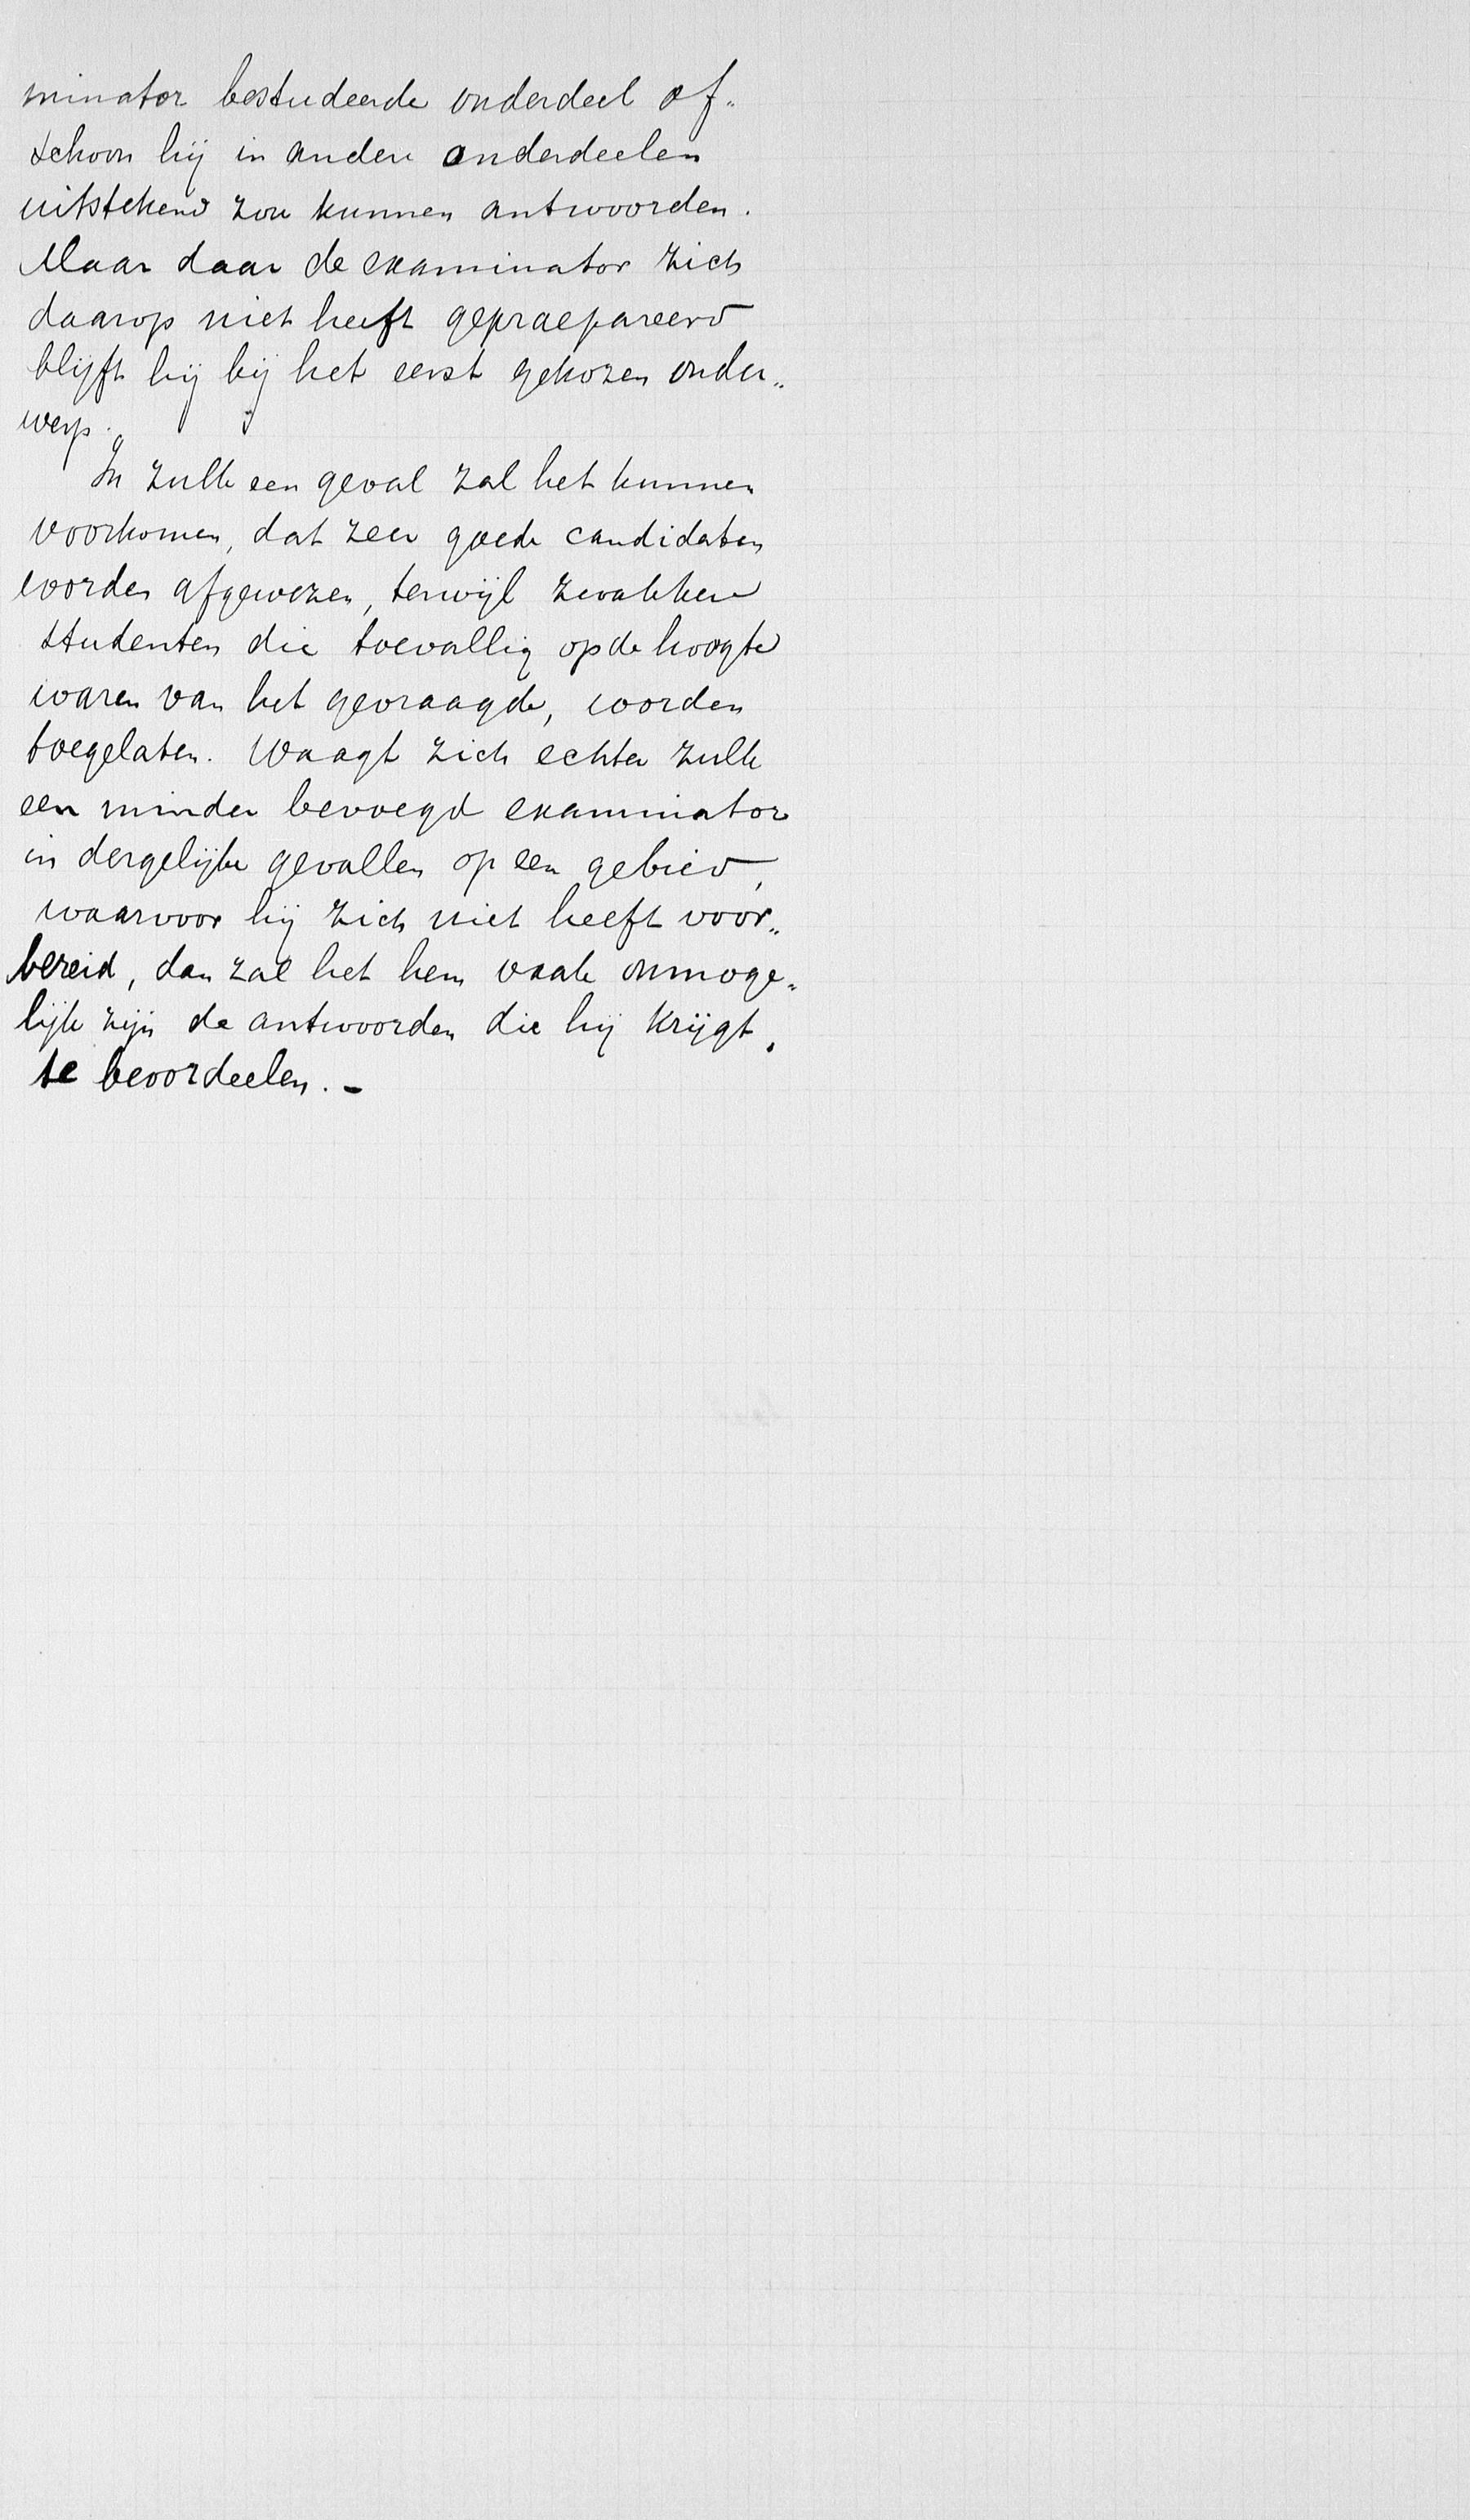 minator bestudeerde onderdeel of„
schoon hij in andere onderdeelen
uitstekend zou kunnen antwoorden.
Maar daar de examinator zich
daarop niet heeft gepraepareerd
blijft hij bij het eerst gekozen onder„
werp.
In zulk een geval zal het kunnen
voorkomen, dat zeer goede candidaten
worden afgewezen, terwijl zwakkere
studenten die toevallig op de hoogte
waren van het gevraagde, worden
toegelaten. Waagt zich echter zulk
een minder bevoegd examinator
in dergelijke gevallen op een gebied,
waarvoor hij zich niet heeft voor„
bereid, dan zal het hem vaak onmoge„
lijk zijn de antwoorden die hij krijgt,
te beoordeelen. -